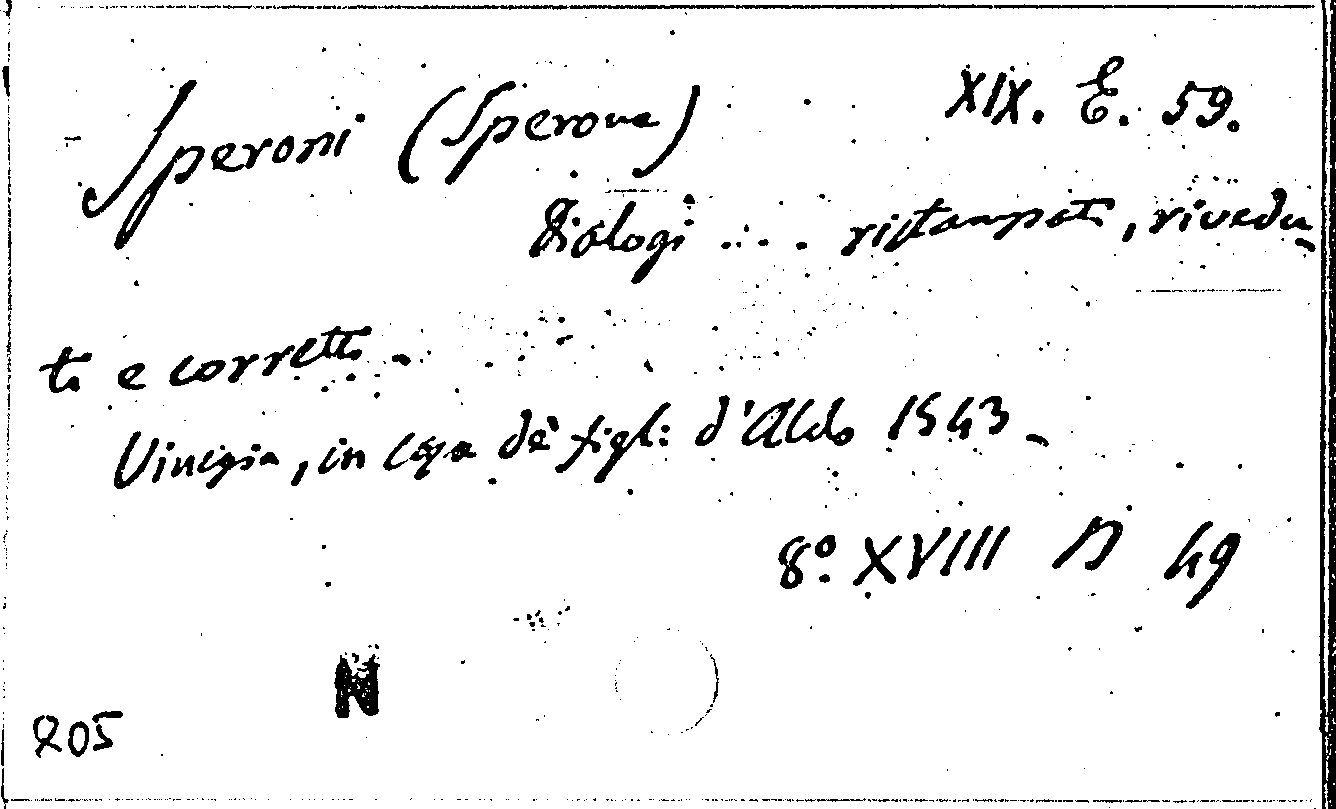 Speroni (Sperone) XIX. E. 59.
Dialogi .... ristampati, rivedu-
ti e corretti -
Vinegia, in casa de' figli: d'Aldo 1543 -
8º XVIII D 49
N
205